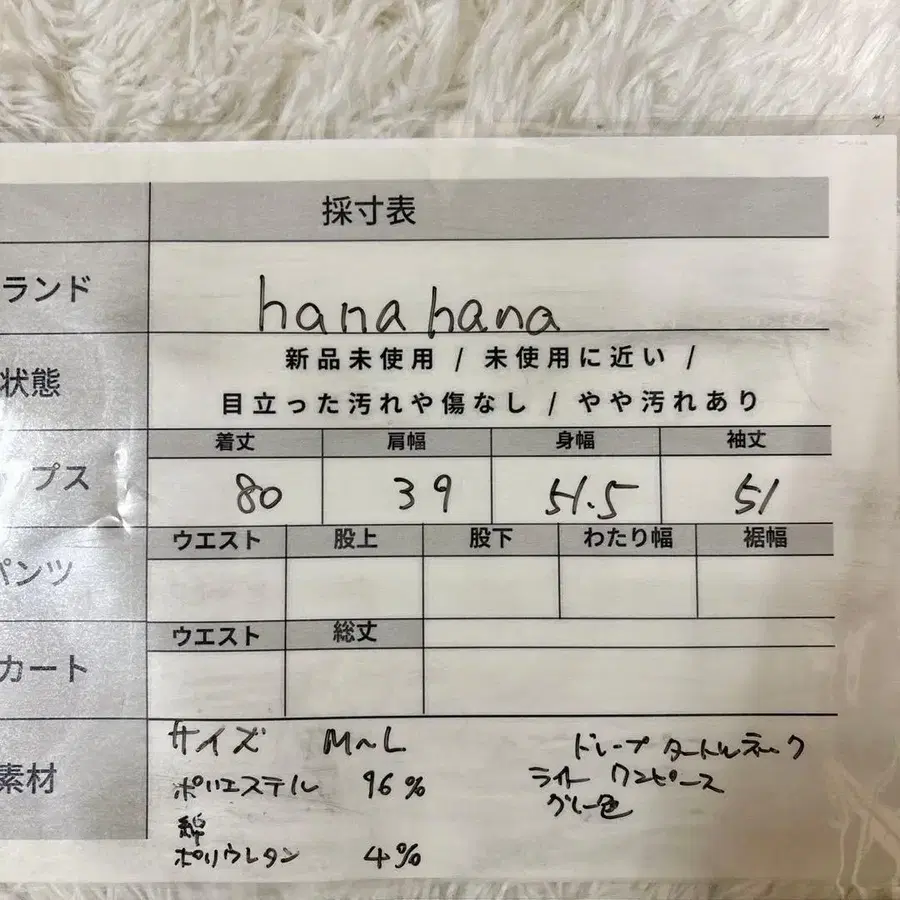 採寸表
ランド
hana hana
状態
新品未使用 / 未使用に近い /
目立った汚れや傷なし / やや汚れあり
プス
着丈 肩幅 身幅 袖丈
80 39 51.5 51
パンツ
ウエスト 股上 股下 わたり幅 裾幅
カート
ウエスト 総丈
素材
サイズ M~L
ポリエステル 96%
綿
ポリウレタン 4%
ドレープ タートルネック
ライト ワンピース
グレー色